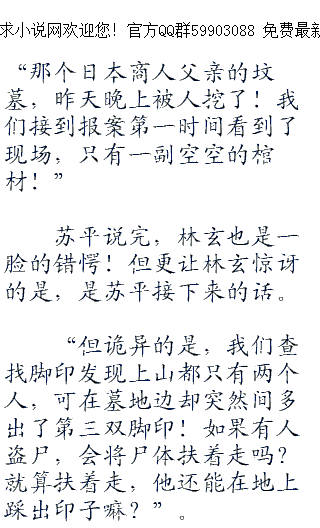 求小说网欢迎您！官方QQ群59903088 免费最新
“那个日本商人父亲的坟
墓，昨天晚上被人挖了！我
们接到报案第一时间看到了
现场，只有一副空空的棺
材！”
苏平说完，林玄也是一
脸的错愕！但更让林玄惊讶
的是，是苏平接下来的话。
“但诡异的是，我们查
找脚印发现上山都只有两个
人，可在墓地边却突然间多
出了第三双脚印！如果有人
盗尸，会将尸体扶着走吗？
就算扶着走，他还能在地上
踩出印子嘛？”。